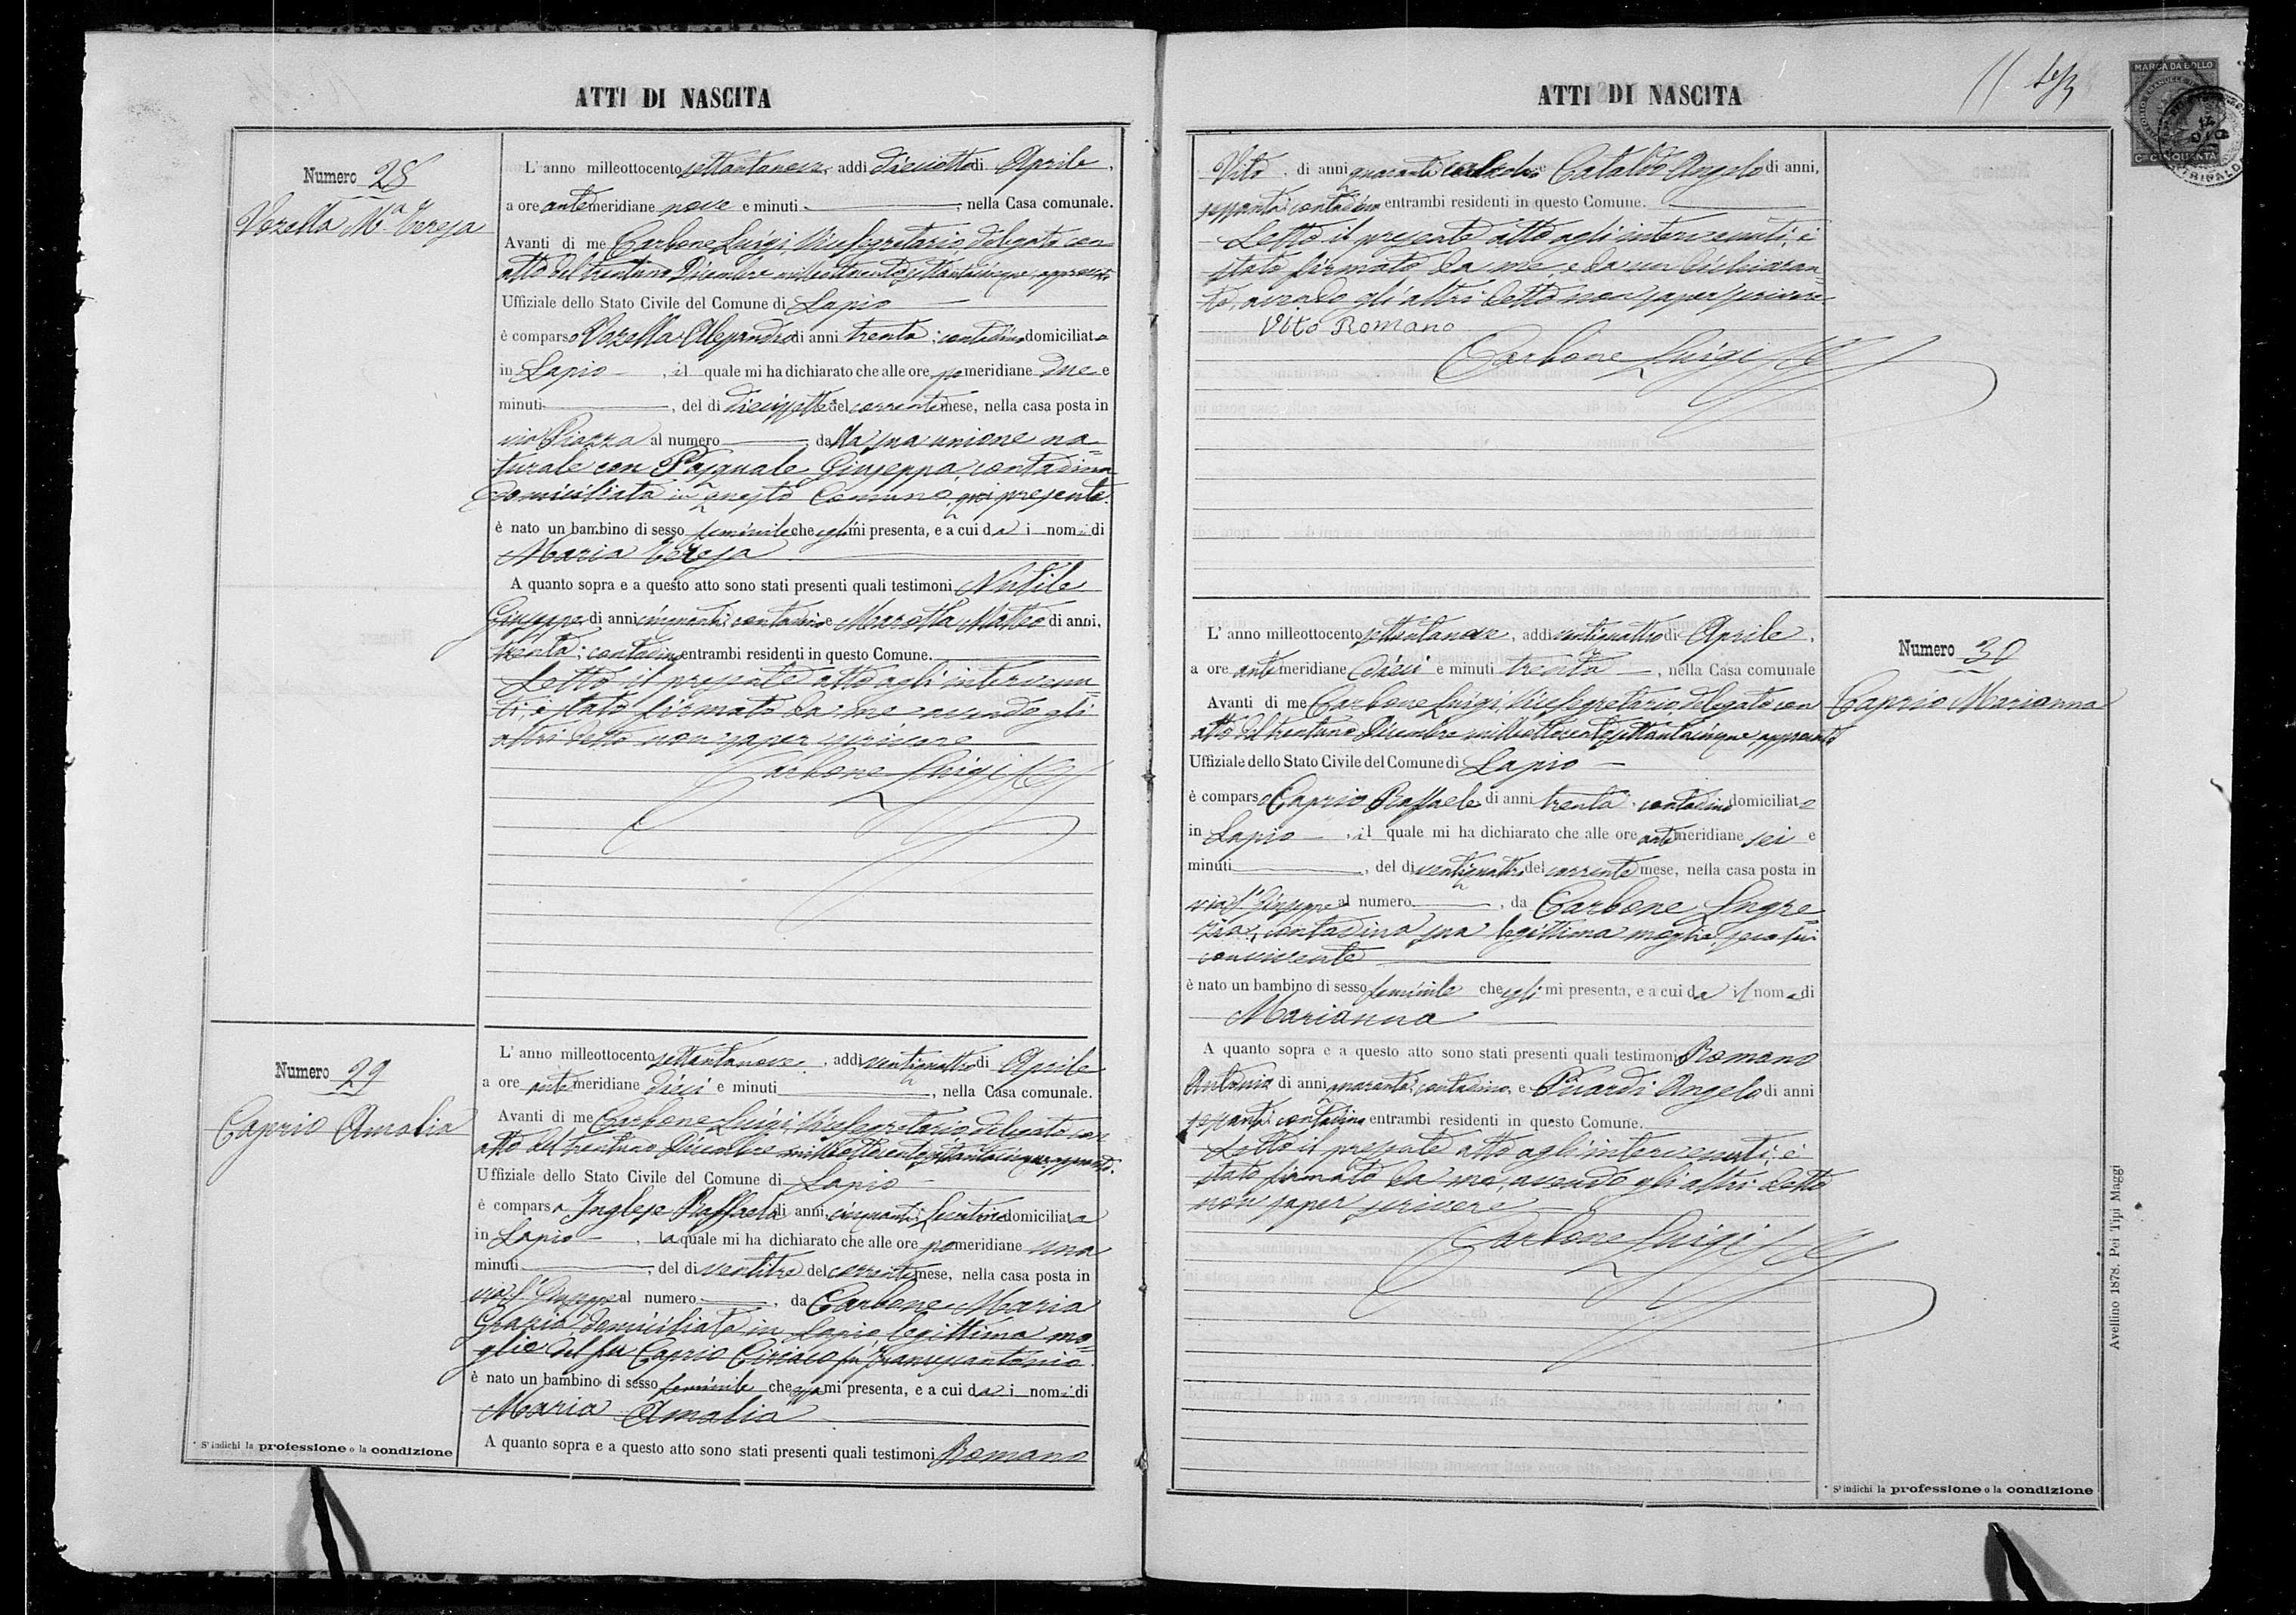 ATTI DI NASCITA
Numero 28
Vozella M.a Teresa
L' anno milleottocento settantanove, addi dieciotto di Aprile,
a ore antemeridiane nove e minuti , nella Casa comunale.
Avanti di me Carbone Luigi, Vicesegretario delegato con
atto del trentuno Dicembre milleottocentosettantacinque, approvato
Uffiziale dello Stato Civile del Comune di Lapio
è comparso Vozella Alessandro di anni trenta, contadino domiciliato
in Lapio, il quale mi ha dichiarato che alle ore pomeridiane due e
minuti , del di diecissette del corrente mese, nella casa posta in
via Piazza al numero , dalla sua unione na=
turale con Pasquale Giuseppa, contadina
domiciliata in questo Comune, qui presente
è nato un bambino di sesso feminile che egli mi presenta, e a cui da i nomi di
Maria Teresa
A quanto sopra e a questo atto sono stati presenti quali testimoni Nubile
Giuseppe di anni cinquanta, contadino e Marotta Matteo di anni,
trenta, contadino entrambi residenti in questo Comune.
Letto il presente atto agli intervenu=
ti, è stato firmato da me avendo gli
altri detto non saper scrivere
Carbone Luigi
Numero 29
Caprio Amalia
L' anno milleottocento settantanove, addi ventiquattro di Aprile
a ore antemeridiane dieci e minuti , nella Casa comunale.
Avanti di me Carbone Luigi, Vicesegretario delegato con
atto del trentuno Dicembre milleottocentosettantacinque, approvato.
Uffiziale dello Stato Civile del Comune di Lapio
è comparsa Inglese Raffaela di anni cinquanta, domiciliata
in Lapio, la quale mi ha dichiarato che alle ore pomeridiane una
minuti , del di ventitre del corrente mese, nella casa posta in
via S. Giuseppe al numero , da Carbone Maria
Grazia, domiciliata in Lapio, legittima mo=
glie del fu Caprio Ciriaco fu Francescantonio
è nato un bambino di sesso feminile che essa mi presenta, e a cui da i nomi di
Maria Amalia
A quanto sopra e a questo atto sono stati presenti quali testimoni Romano
* S' indichi la professione o la condizione
ATTI DI NASCITA
MARCA DA BOLLO
Cmi CINQUANTA
Vito, di anni quaranta e Cataldo Angelo di anni,
sessanta, contadino entrambi residenti in questo Comune.
Letto il presente atto agli intervenuti, è
stato firmato da me, e da un dichiaran=
te, avendo gli altri detto non saper scrivere
Vito Romano
Carbone Luigi
Numero 30
Caprio Marianna
L' anno milleottocento settantanove, addi ventiquattro di Aprile,
a ore antemeridiane dieci e minuti trenta, nella Casa comunale
Avanti di me Carbone Luigi, Vicesegretario delegato con
atto del trentuno Dicembre milleottocentosettantacinque, approvato
Uffiziale dello Stato Civile del Comune di Lapio
è comparso Caprio Raffaele di anni trenta, contadino domiciliato
in Lapio, il quale mi ha dichiarato che alle ore antemeridiane sei e
minuti , del di ventiquattro del corrente mese, nella casa posta in
via S. Giuseppe al numero , da Carbone Lugre=
zia, contadina sua legittima moglie, seco lui
convivente
è nato un bambino di sesso feminile che egli mi presenta, e a cui da il nome di
Marianna
A quanto sopra e a questo atto sono stati presenti quali testimoni Romano
Antonio di anni quaranta, contadino, e Picardi Angelo di anni
sessanta, contadino entrambi residenti in questo Comune.
Letto il presente atto agli intervenuti, è
stato firmato da me, avendo gli altri detto
non saper scrivere
Carbone Luigi
* S' indichi la professione o la condizione
Avellino 1878. Pei Tipi Maggi